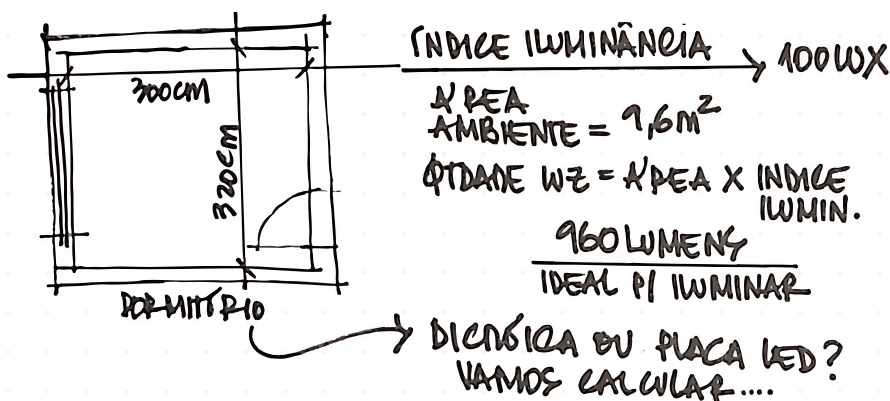 300CM
320CM
DORMITÓRIO
ÍNDICE ILUMINÂNCIA → 100 LUX
ÁREA
AMBIENTE = 9,6m²
QTDADE LUZ = ÁREA X INDICE
ILUMIN.
960 LUMENS
IDEAL P/ ILUMINAR
DICRÓICA OU PLACA LED?
VAMOS CALCULAR....